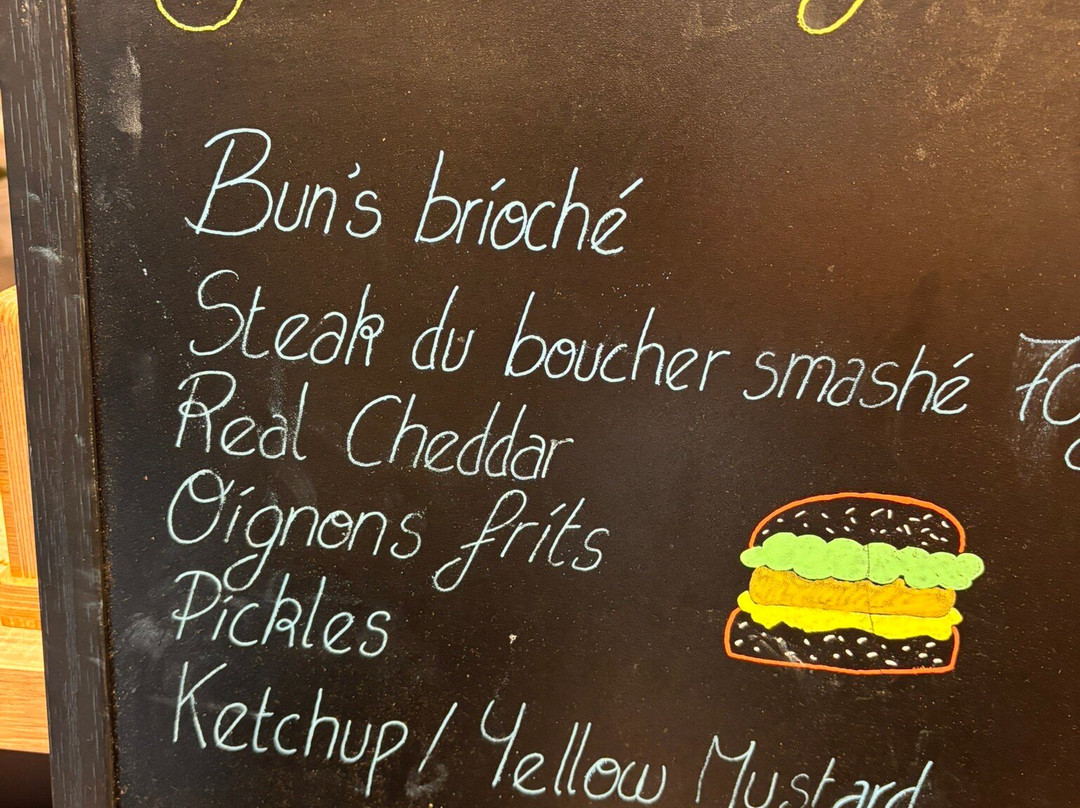 Bun's brioché
Steak du boucher smashé 70g
Real Cheddar
Oignons frits
Pickles
Ketchup / Yellow Mustard